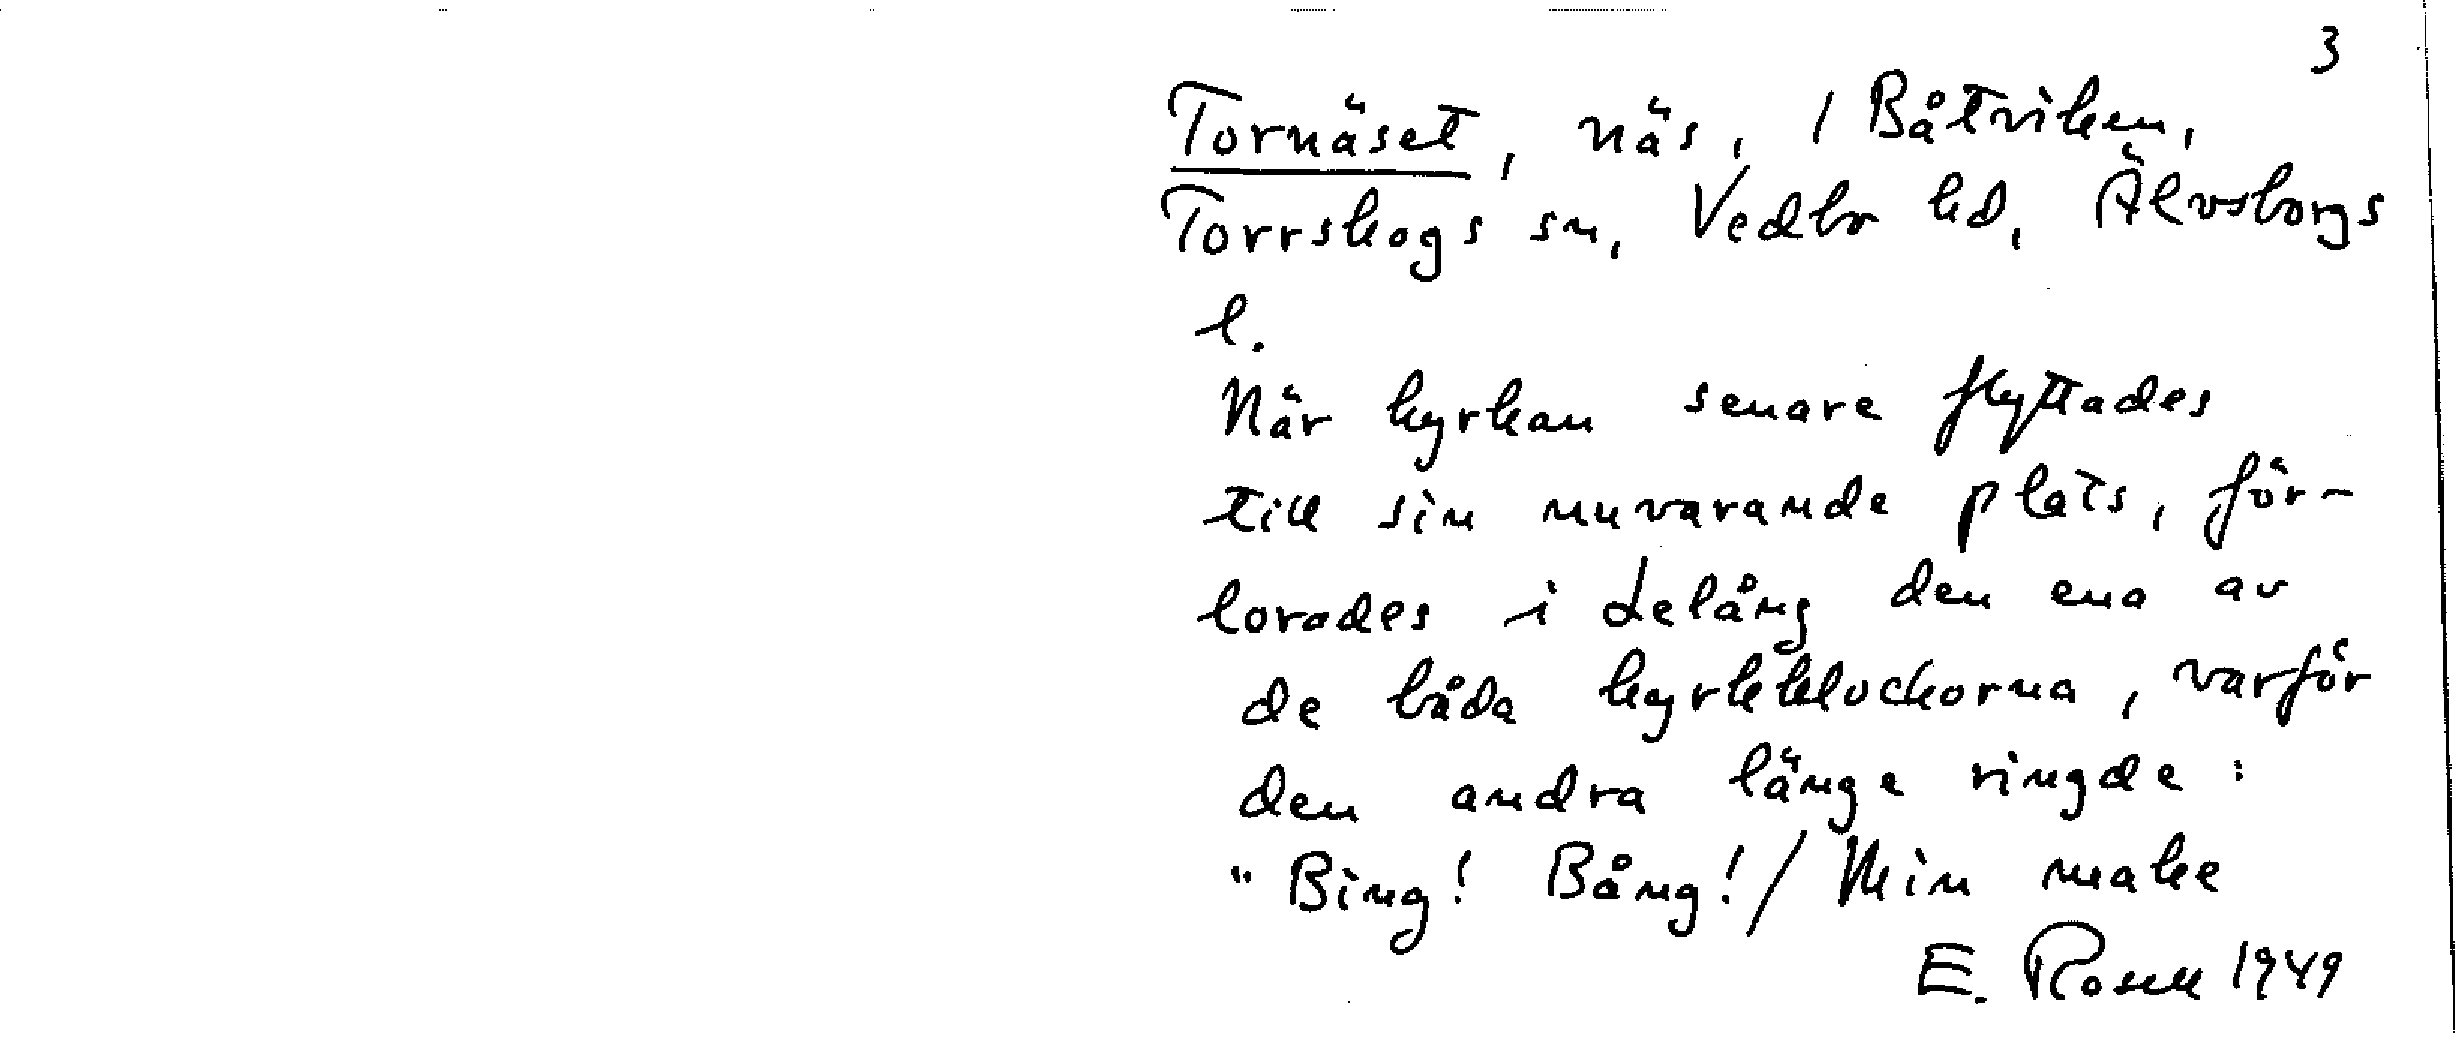 3
Tornäset, näs, i Båtviken,
Torrskogs sn, Vedbo hd, Älvsborgs
l.
När kyrkan senare flyttades
till sin nuvarande plats, för-
lorades i Lelång den ena av
de båda kyrkklockorna, varför
den andra länge ringde:
"Bing! Bång! / Min make
E. Rosell 1949